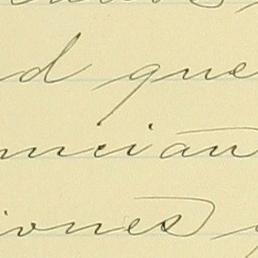 d que
ncian
iones